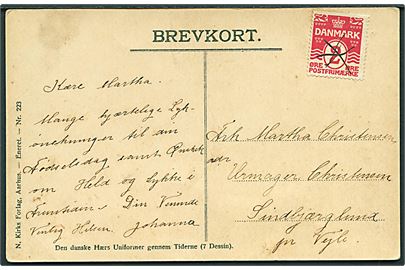 BREVKORT.
DANMARK
2
ØRE ØRE
POSTFRIMÆRKE
Kære Martha.
Mange hjærtelige Lyk-
ønskninger til din
Fødselsdag samt Ønsket
om Held og Lykke i
Fremtiden. Din Veninde
Venlig Hilsen. Johanna
Frk Martha Christensen
adr
Urmager Christensen
Sindbjærglund
pr Vejle.
Den danske Hærs Uniformer gennem Tiderne (7 Dessin).
N. Kirks Forlag, Aarhus. — Eneret. — Nr. 223